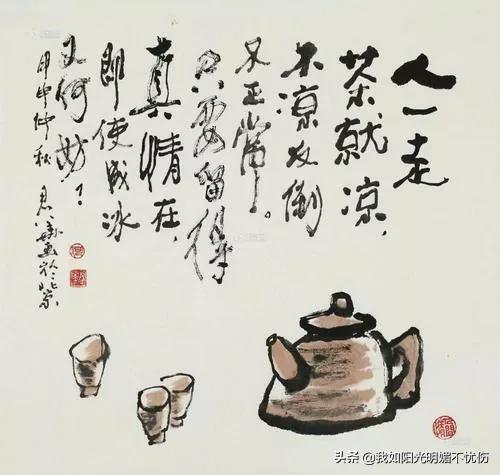 人一走
茶就凉，
不凉反倒
不正常。
只要留得
真情在，
即使成冰
又何妨！
甲申仲秋
画於北京
头条 @我如阳光明媚不忧伤